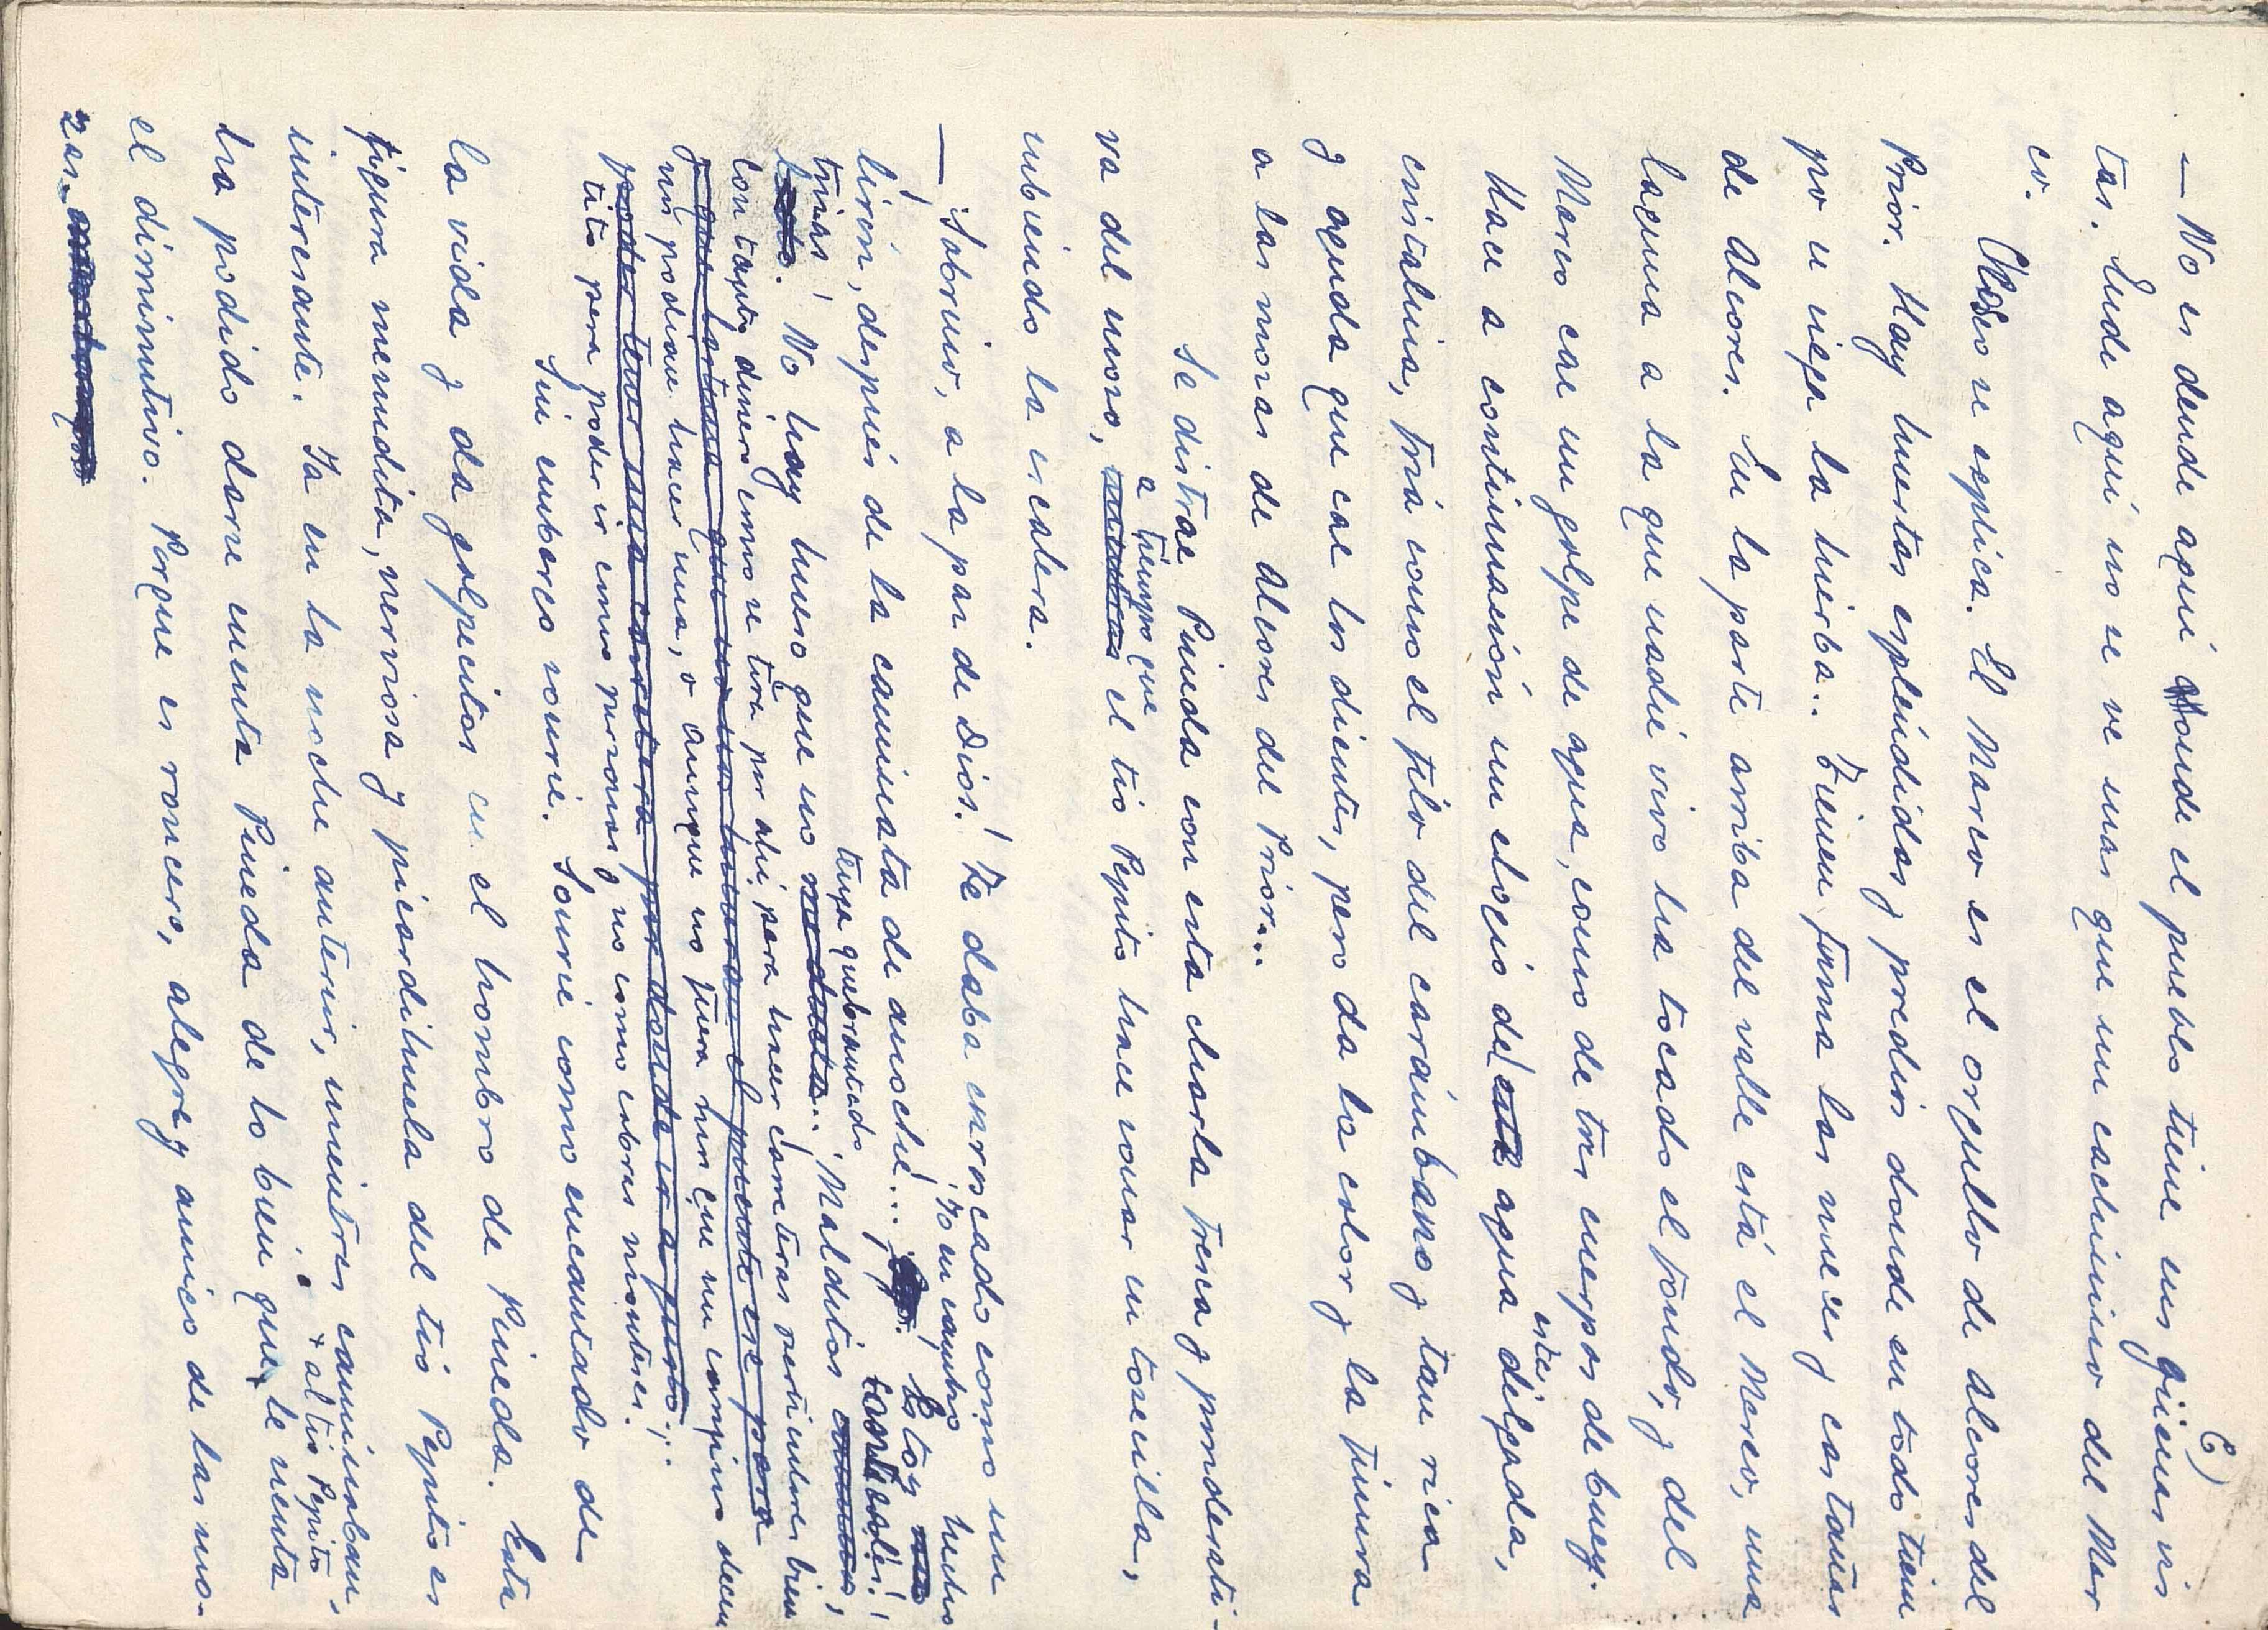 6)
— No es dende aquí donde el pueblo tiene sus güenas vis
tas. Ende aquí no se ve mas que un cachinino del Mar
co.
Chosco se explica. El Marco es el orgullo de Alcores del
Prior. Hay huertas espléndidas y predios donde en todo tiem
po se siega la hierba. Tienen fama las nueces y castañas
de Alcores. En la parte arriba del valle está el Marco, una
laguna a la que nadie vivo ha tocado el fondo, y del
Marco cae un golpe de agua, como de tres cuerpos de buey.
Hace a continuación un elogio de esta agua delgada,
esta
cristalina, fría como el filo del carámbano y tan rica
y aguda que cae los dientes, pero da la color y la finura
a las mozas de Alcores del Prior...
Se distrae Pineda con esta charla fresca y ponderati-
va del mozo,
a tiempo que
el tío Pepito hace sonar su tosecilla,
subiendo la escalera.
— ¡Sabruno, a la paz de Dios! Te daba enroscado como un
lirón, después de la caminata de anoche!... ¡Yo en cambio
Estoy hecho
trizas! No hay hueso que no me duela..
tenga quebrantado
¡Malditos caminos,
tantarantanes!
con tanto dinero como se tira por ahí, para hacer carreteras
y que bastara que nos
nos podian hacer una, o aunque no fuera mas que un caminos decen
poder tener una carretera por donde ir a gusto!..
tito para poder ir como personas y no como cabras monteses.
Sin embargo sonrie. Sonrie como encantado de
la vida y da golpecitos en el hombro de Pineda. Esta
figura menudita, nerviosa y picardihuela del tío Pepito es
interesante. Ya en la noche anterior, mientras caminaban,
ha podido darse cuenta Pineda de lo bien que le sienta
x al tío Pepito
el diminutivo. Porque es roncero, alegre y amigo de las mo-
zas.